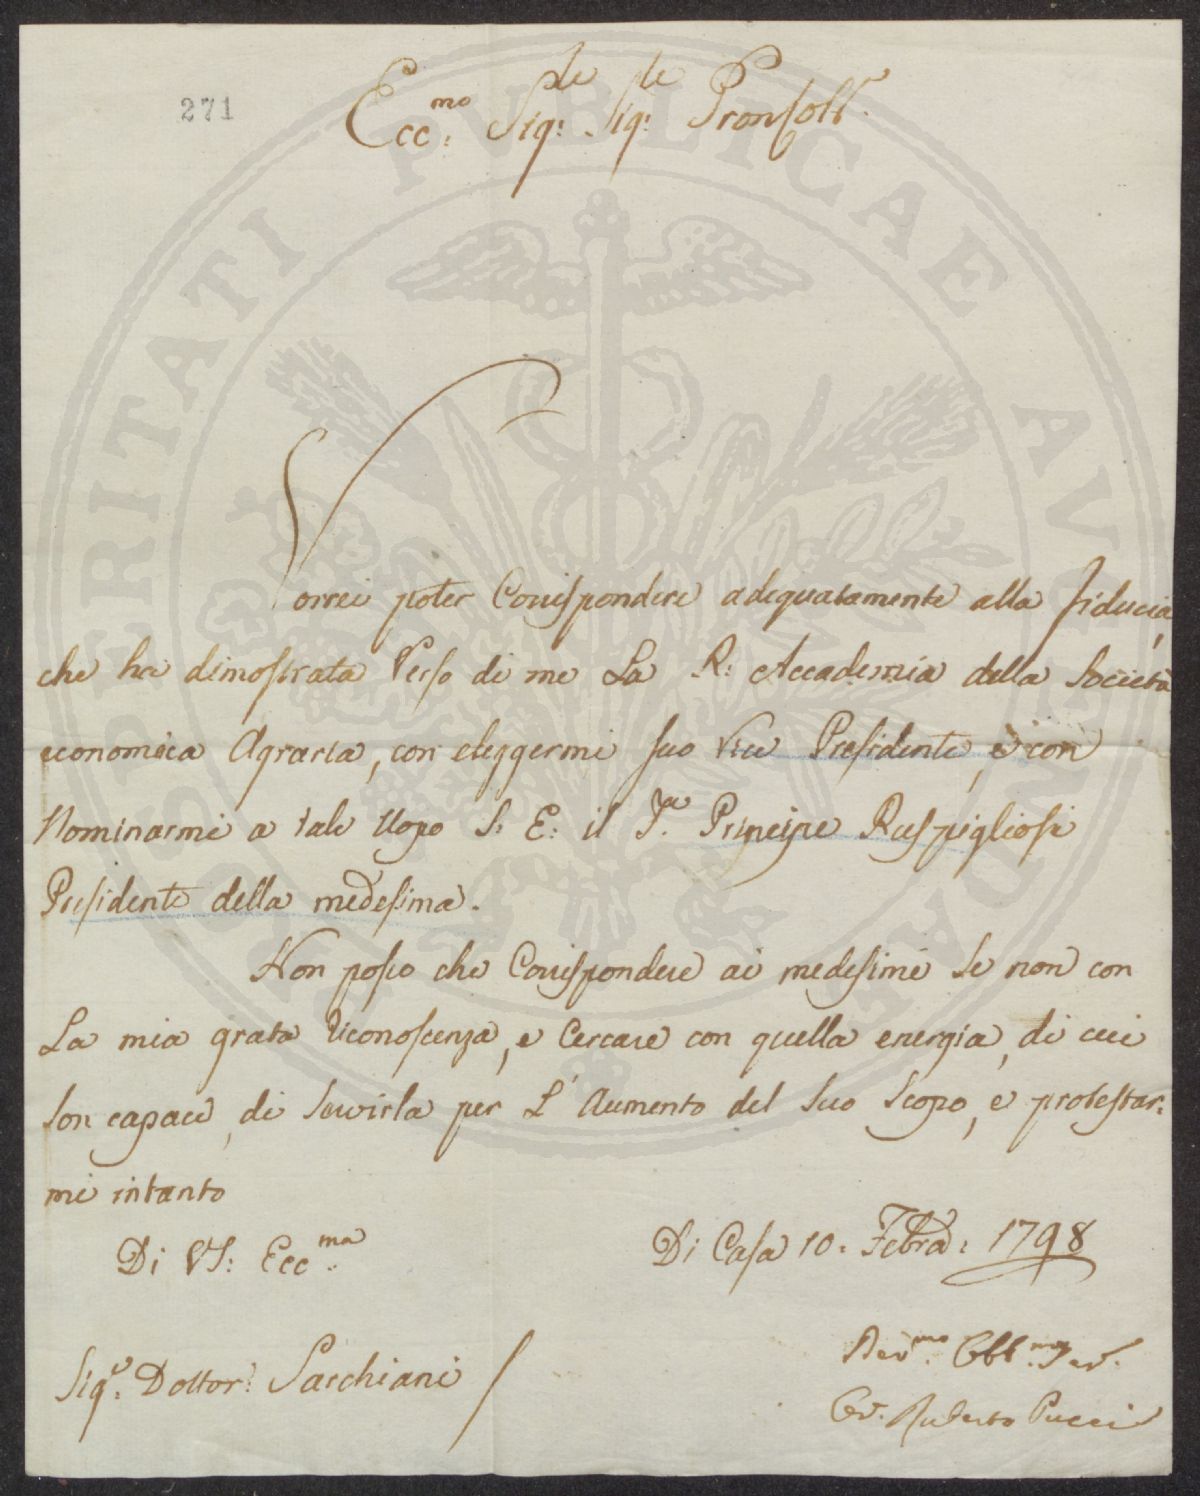 271
Ecc.mo Sig.re Sig.re Pron Colt.
Vorrei poter Corrispondere adequatamente alla fiducia,
che ha dimostrata Verso di me La R: Accademia della Società
economica Agraria, con eleggermi suo Vice Presidente, e con
Nominarmi a tale Uopo S: E: il S.re Principe Ruspigliosi
Presidente della medesima.
Non posso che Corrispondere ai medesimi se non con
La mia grata riconoscenza, e Cercare con quella energia, di cui
son capace, di servirla per L'Aumento del suo scopo, e protestar:
mi intanto
Di VS: Ecc.ma
Di Casa 10: Febra: 1798
Sig.e Dottor: Sacchiani
Dev.mo Obb.mo Ser.
Cav. Ruberto Pucci
PROSPERITATI PVBLICAE AVGENDAE